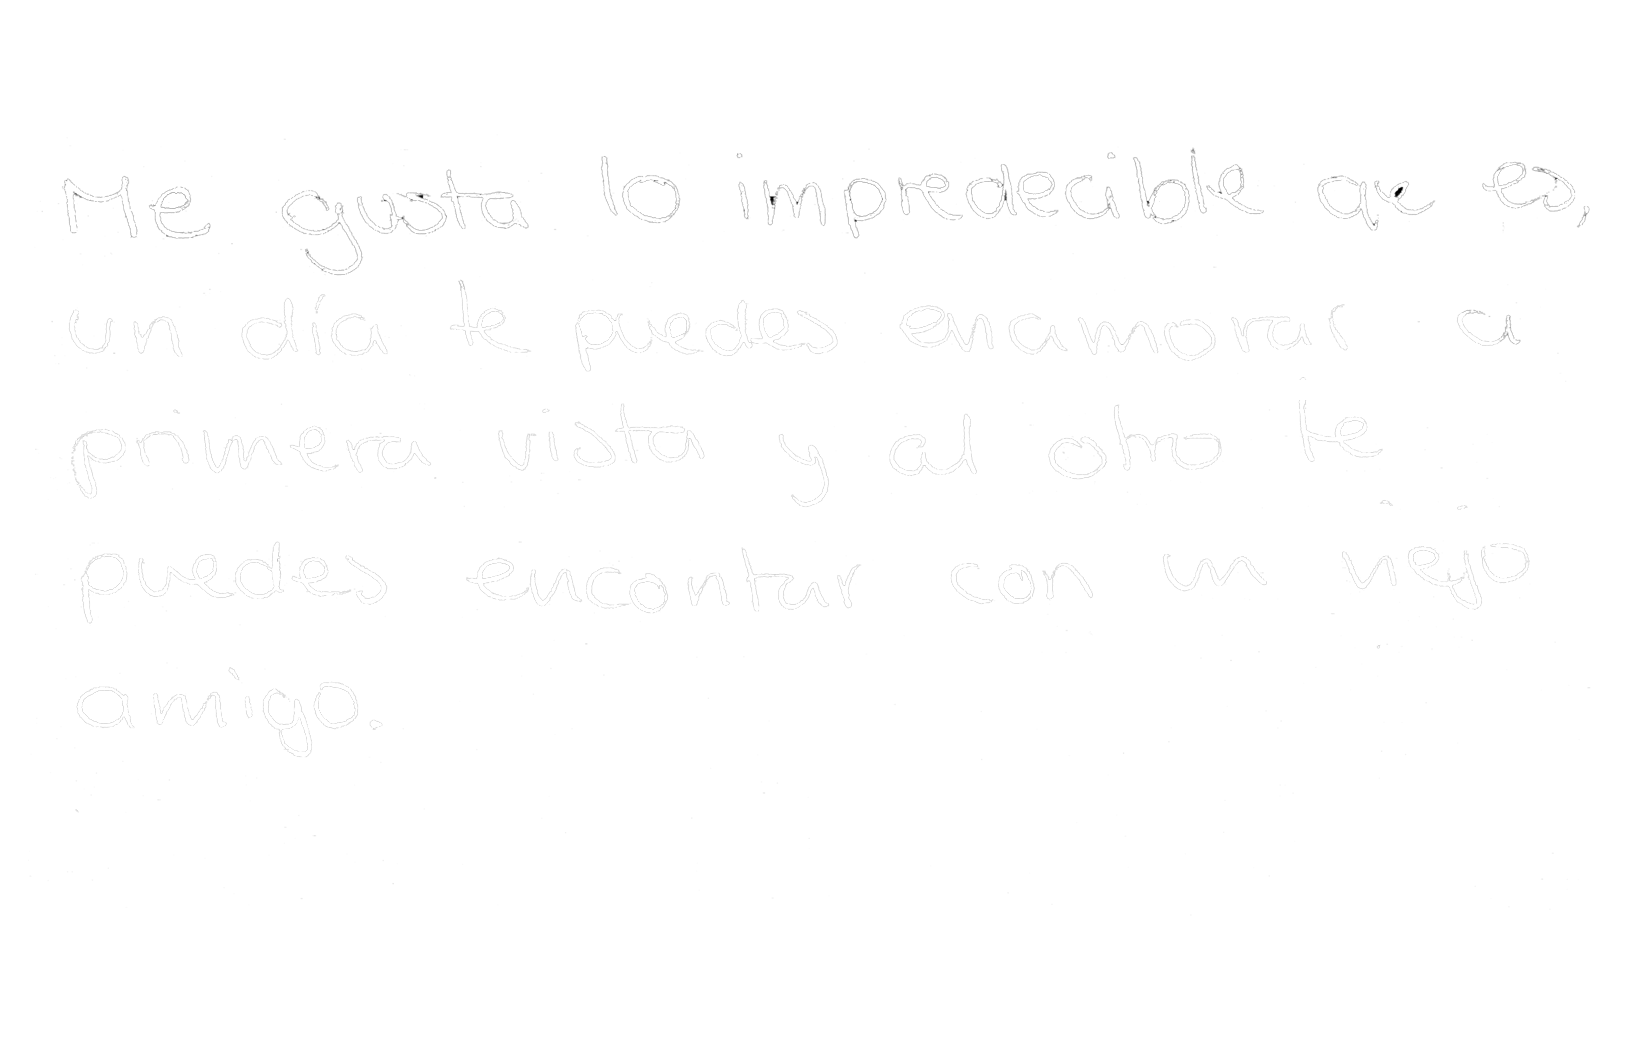 Me gusta lo impredecible que es,
un día te puedes enamorar a
primera vista y al otro te
puedes encontrar con un viejo
amigo.